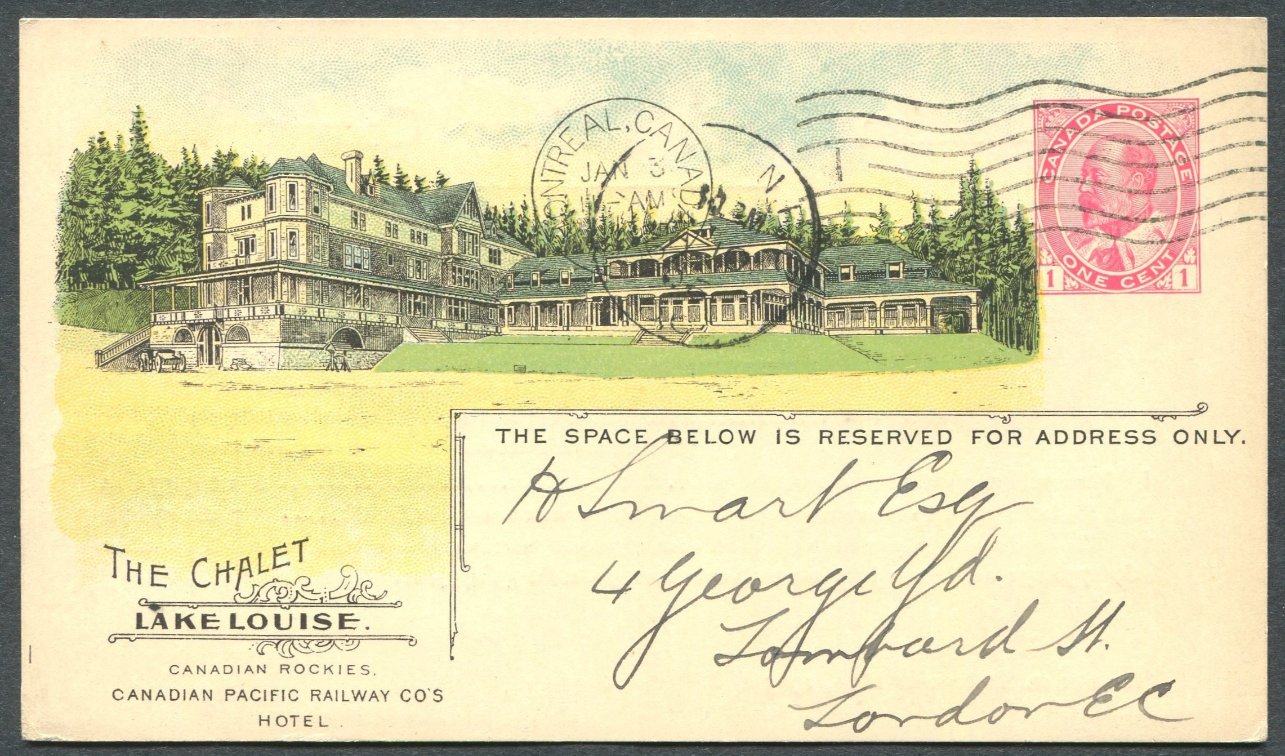 MONTREAL, CANADA
JAN 3
AM
CANADA POSTAGE
1 ONE CENT 1
THE SPACE BELOW IS RESERVED FOR ADDRESS ONLY.
H Smart Esq
4 George Yd.
Lombard St.
London EC
THE CHALET
LAKE LOUISE.
CANADIAN ROCKIES,
CANADIAN PACIFIC RAILWAY CO'S
HOTEL.